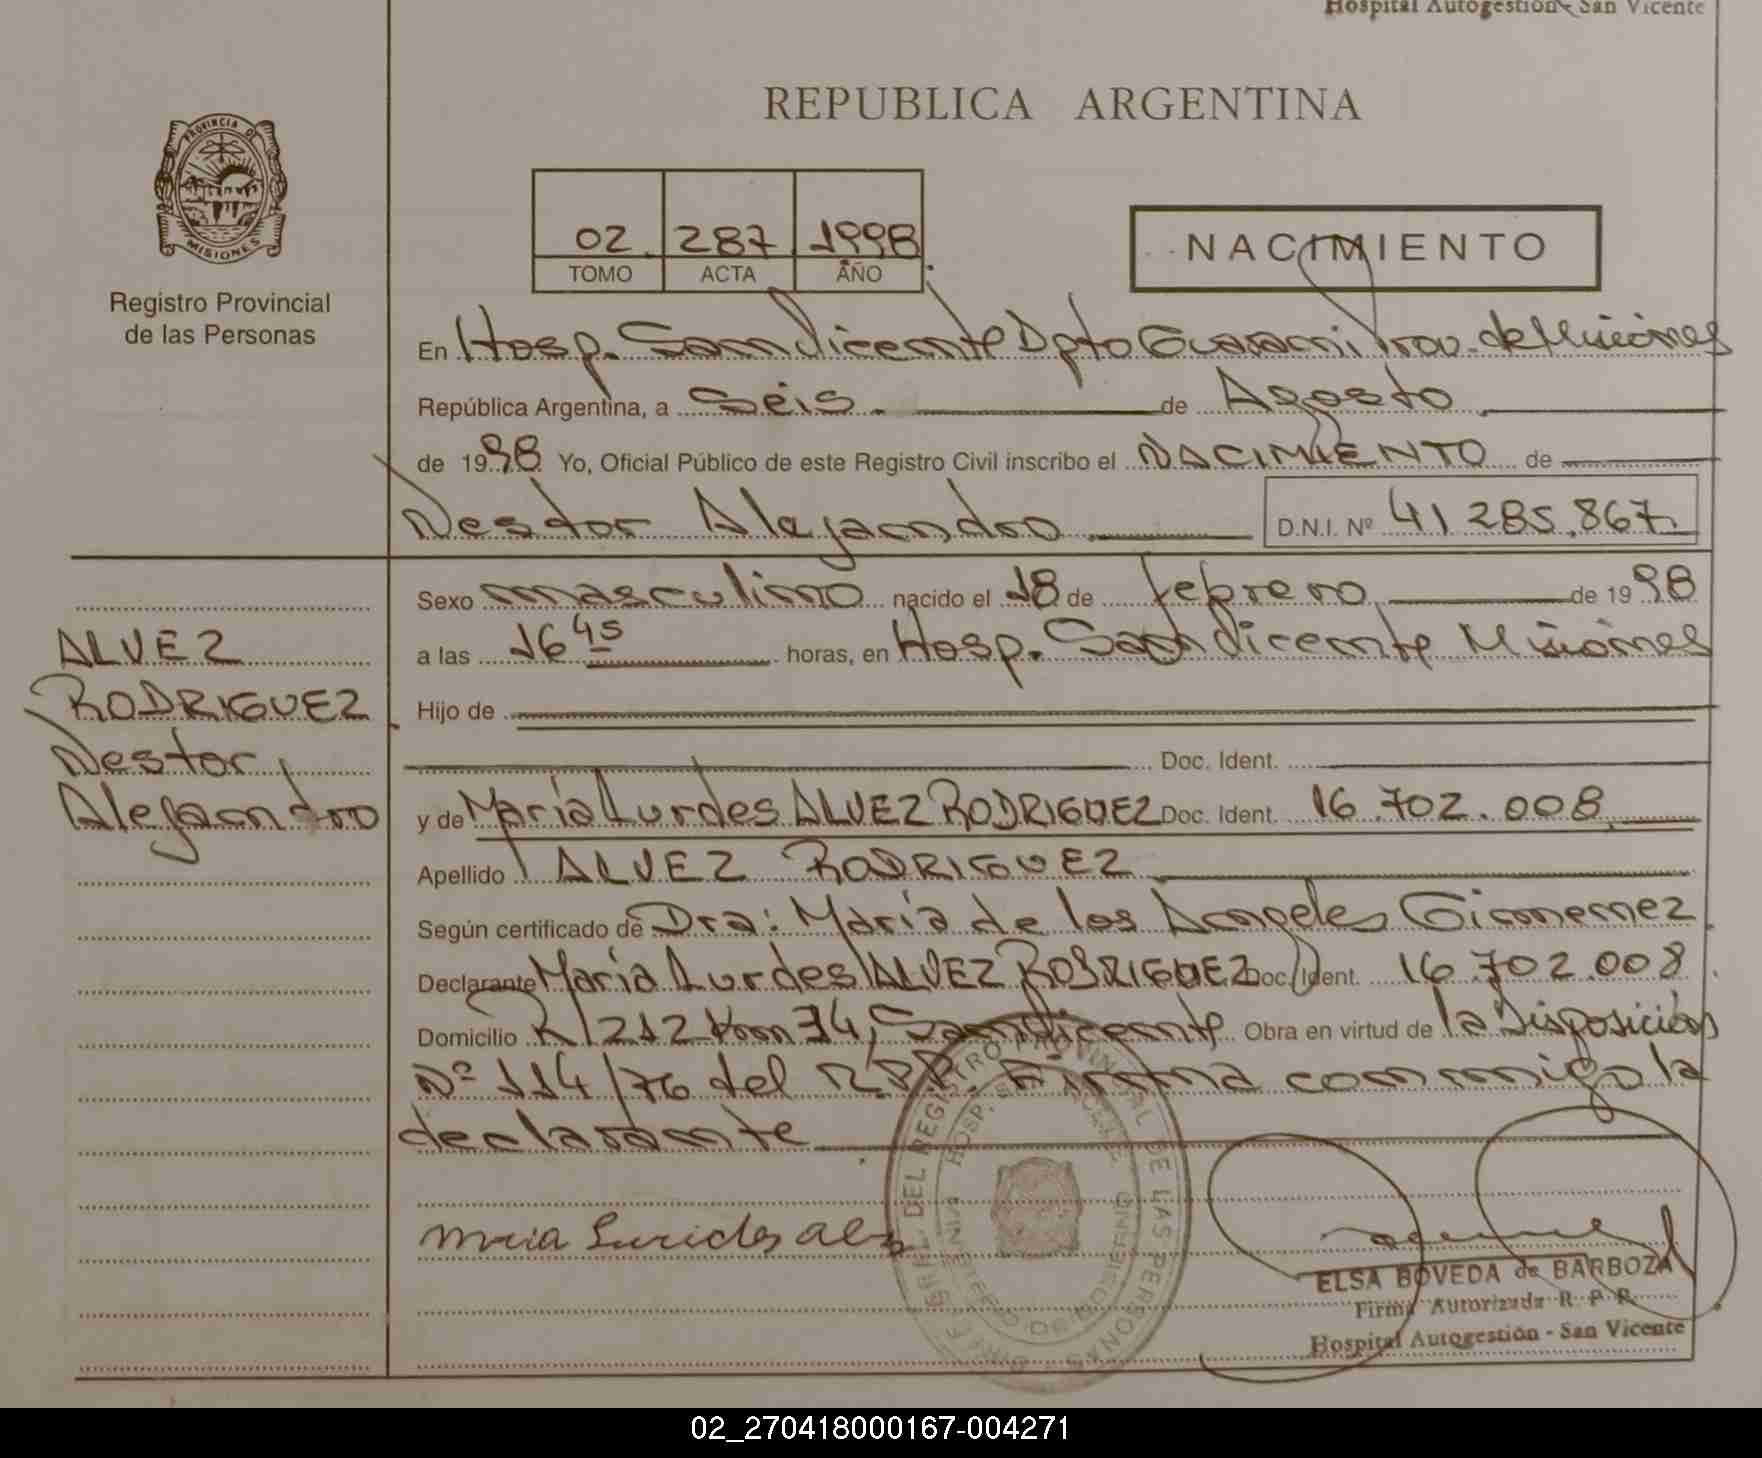 Hospital Autogestión - San Vicente
REPUBLICA ARGENTINA
PROVINCIA DE
MISIONES
Registro Provincial
de las Personas
02 287 1998
TOMO ACTA AÑO
NACIMIENTO
En Hosp. San Vicente Dpto Guarani, Prov. de Misiones
República Argentina, a Seis de Agosto
de 1998 Yo, Oficial Público de este Registro Civil inscribo el NACIMIENTO de
Nestor Alejandro D.N.I. Nº 41 285.867
Sexo masculino nacido el 18 de febrero de 1998
a las 16 45 horas, en Hosp. San Vicente Misiones
Hijo de
Doc. Ident.
y de Maria Lurdes ALVEZ RODRIGUEZ Doc. Ident. 16.702.008
Apellido ALVEZ RODRIGUEZ
Según certificado de Dra: Maria de los Angeles Gimenez
Declarante Maria Lurdes ALVEZ RODRIGUEZ Doc. Ident. 16.702.008
Domicilio R/212 Km 74, San Vicente Obra en virtud de la Disposición
Nº 114/76 del R.P.P. Firma conmigo la
declarante
ALVEZ
RODRIGUEZ
Nestor
Alejandro
DEL REGISTRO PROVINCIAL DE LAS PERSONAS
HOSP. S. VICENTE
Maria Lurides
ELSA BOVEDA de BARBOZA
Firma Autorizada R. P. P.
Hospital Autogestión - San Vicente
02_270418000167-004271